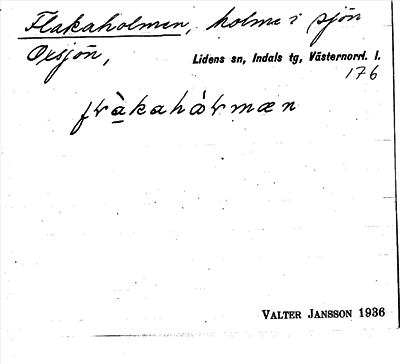 Flakaholmen, holme i sjön
Oxsjön,
Lidens sn, Indals tg, Västernorrl. l.
176
fràkahàrmæn
VALTER JANSSON 1936